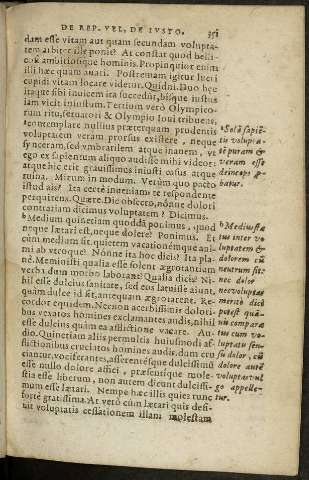 DE REP. VEL, DE IVSTO. 351
dam esse vitam aut quam secundam volupta-
tem arbiter ille ponit? At constat quod belli-
ci & ambitiosique hominis. Propinquior enim
illi hæc quam auari. Postremam igitur lucri
cupidi vitam locare videtur. Quidni. Duo hæc
itaque sibi inuicem ita succedūt, bisque iustus
iam vicit iniustum. Tertium verò Olympico-
rum ritu, seruatori & Olympio Ioui tribuens,
contemplare nullius præterquam prudentis
voluptatem veram prorsus existere, neque
synceram, sed vmbratilem atque inanem, vt
ego ex sapientum aliquo audisse mihi videor:
atque hic erit grauissimus iniusti casus atque
ruina. Mirum in modum. Verùm quo pacto
istud ais? Ita certè inueniam te respondente
perquirens. Quære. Dic obsecro, nónne dolori
contrariam dicimus voluptatem? Dicimus.
Medium quin etiam quoddā ponimus, quod
neque lætari est, neque dolere? Ponimus. Et
cùm medium sit, quietem vacationémque ani-
mi ab vtroque? Nónne ita hoc dicis? Ita pla-
nè. Meministi qualia esse solent ægrotantium
verba dum morbo laborant? Qualia dicis? Ni-
hil esse dulcius sanitate, sed eos latuisse aiunt,
quàm dulce id sit, antequam ægrotarent. Re-
cordor equidem. Necnon acerbissimis dolori-
bus vexatos homines exclamantes audis, nihil
esse dulcius quàm ea afflictione vacare. Au-
dio. Quinetiam aliis permultis huiusmodi af-
flictionibus cruciatos homines audis, dum cru
ciantur, vociferantes, asserentésque dulcissimū
esse nullo dolore affici, præsentique mole-
stia esse liberum, non autem dicunt dulcissi-
mum esse lætari. Nempe hæc illis quies tunc
forte gratissima. At verò cùm lætari quis desi-
nit voluptatis cessationem illam molestam
Solā sapiē-
tis volupta-
tē puram &
veram esse
deinceps pro-
batur.
Mediū stāe
tus inter vo
luptatem &
dolorem cū
neutrum sit:
nec dolor
neevoluptas
meritò dici
potest: quā-
uis compara
tus cum vo-
luptatis sen-
su dolor, cū
dolore autē
voluptas vul
go appelle-
tur.